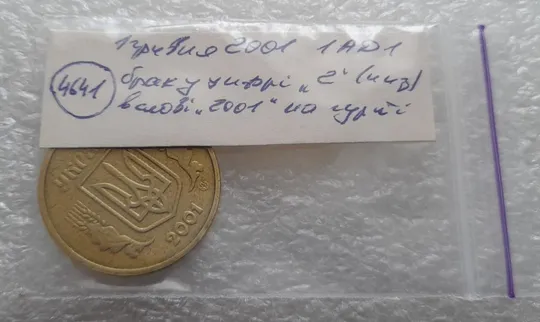 1 гривня 2001 1АД1
4641
брак у цифрі „2" (низ)
в слові „2001" на гурті
УКРАЇ
2001